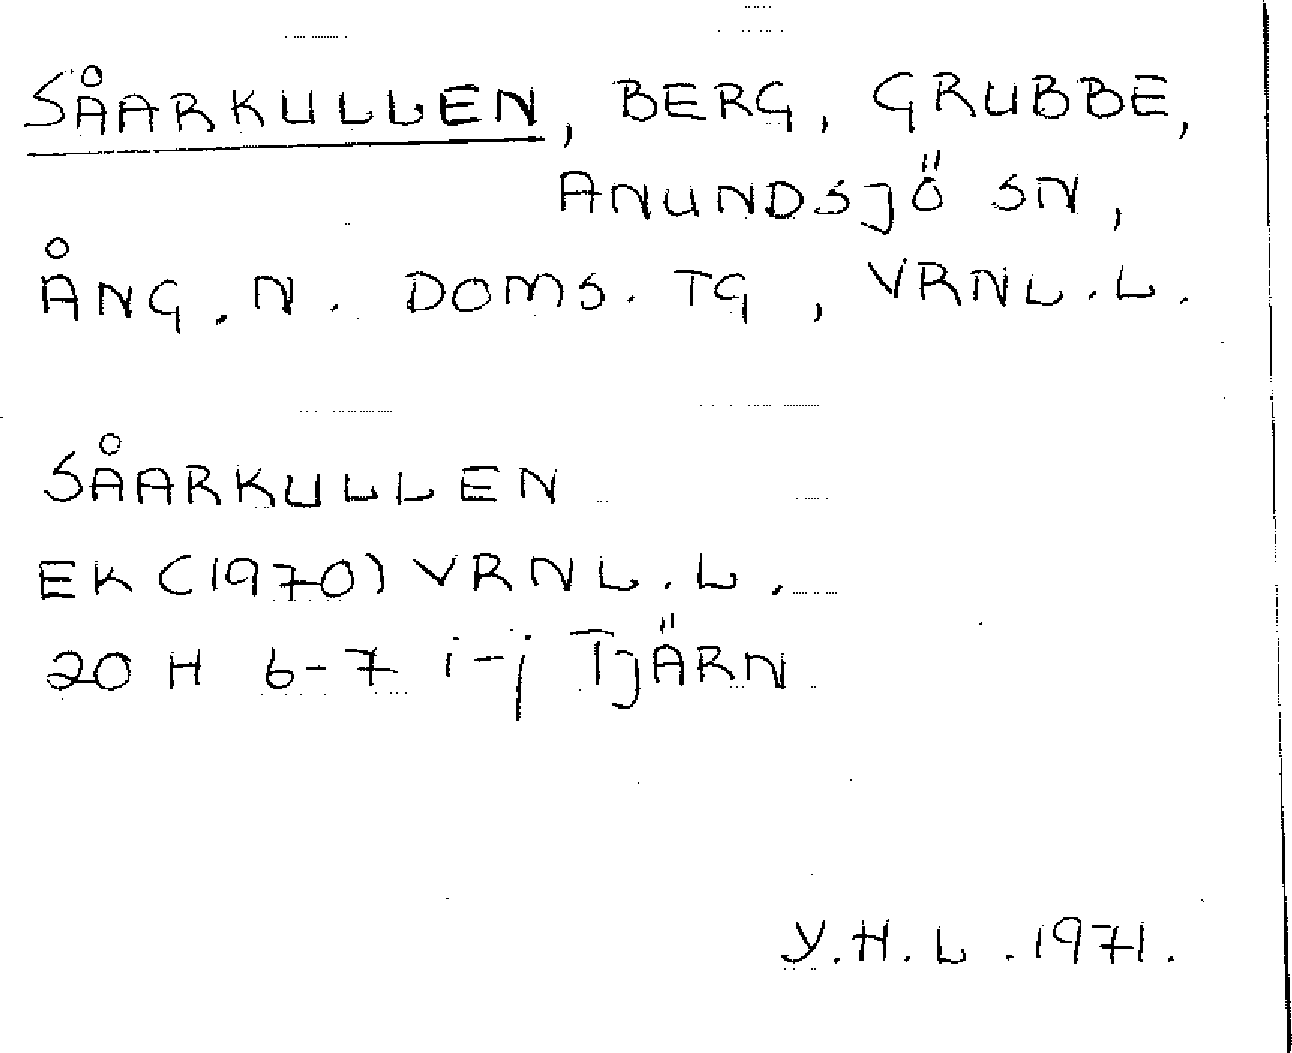 SÅARKULLEN, BERG, GRUBBE,
ANUNDSJÖ SN,
ÅNG. N. DOMS. TG, VRNL.L.
SÅARKULLEN
EK (1970) VRNL.L.
20 H 6-7 i-j TJÄRN
Y.H.L. 1971.